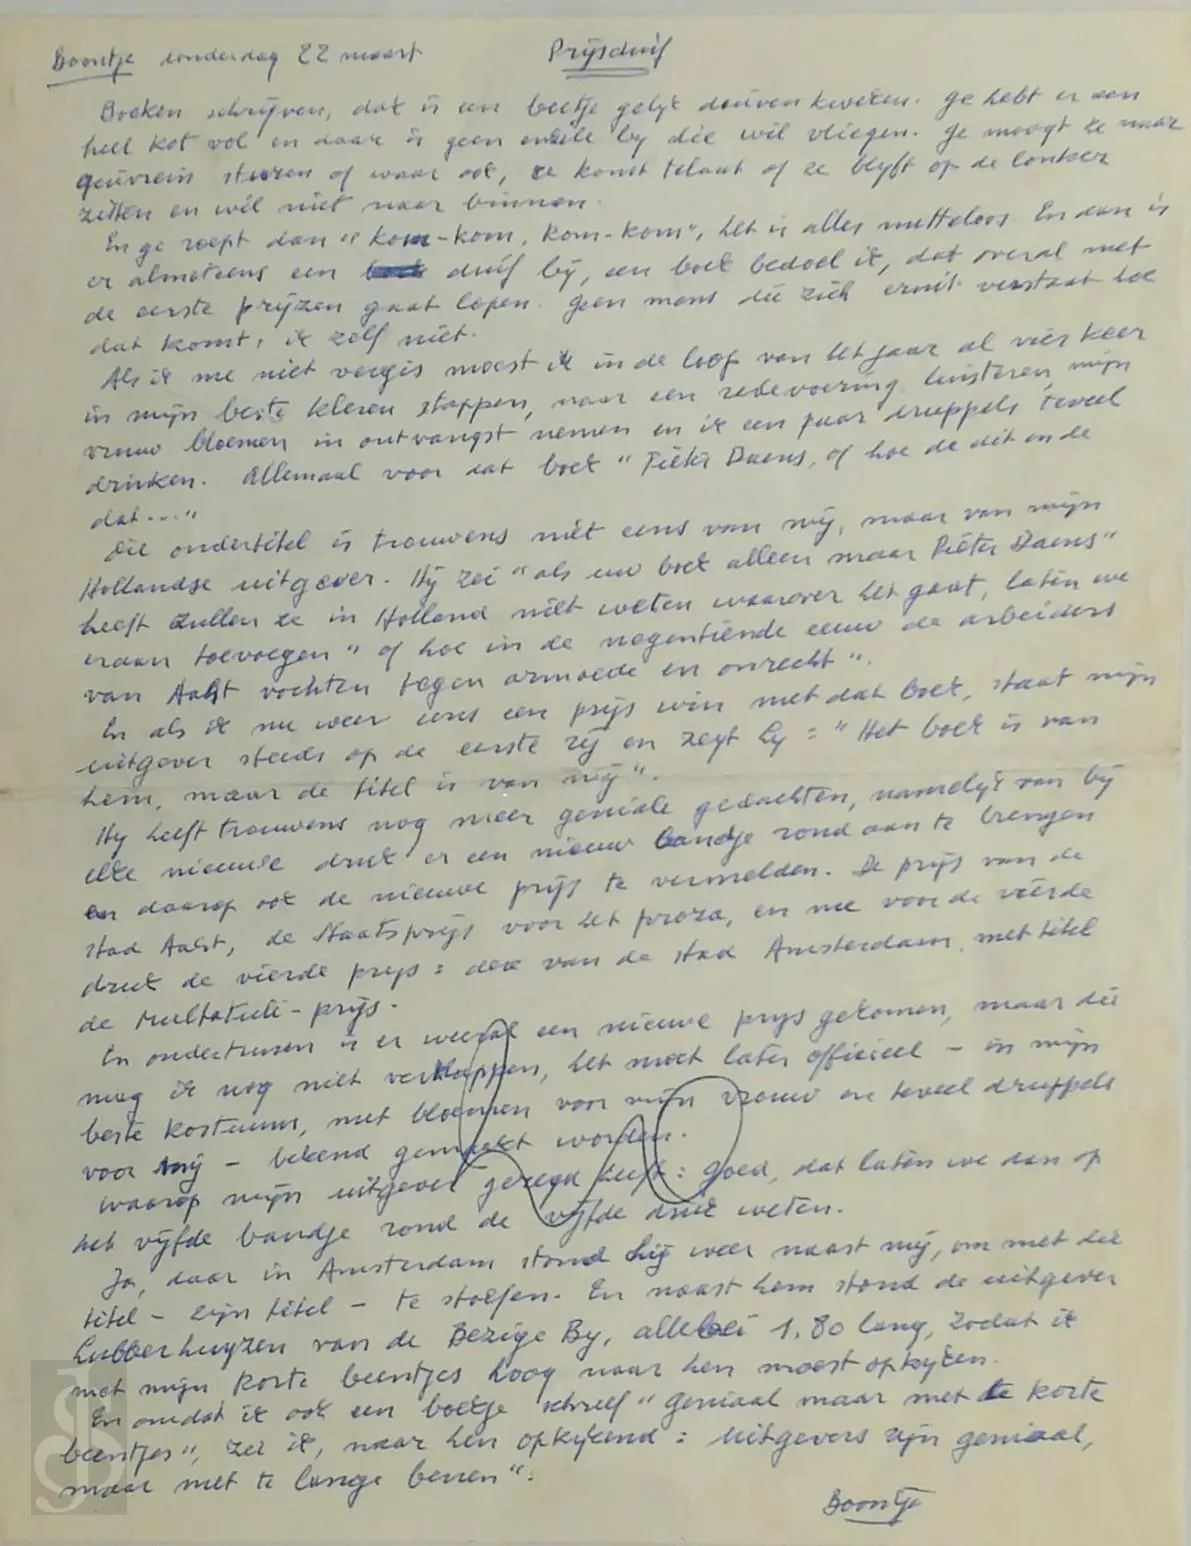 Boontje donderdag 22 maart Prijsduif
Boeken schrijven, dat is een beetje gelijk duiven kweken. Ge hebt er een
heel kot vol en daar is geen enkele bij die wil vliegen. Ge moogt ze naar
Quiévrain sturen of waar ook, ze komt telaat of ze blijft op de
zitten en wil niet naar binnen.
En ge roept dan "kom-kom, kom-kom", het is alles nutteloos. En dan is
er almeteens een duif bij, een boek bedoel ik, dat overal met
de eerste prijzen gaat lopen. Geen mens die zich eruit verstaat hoe
dat komt, ik zelf niet.
Als ik me niet vergis moest ik in de loop van het jaar al vier keer
in mijn beste kleren stappen, naar een redevoering luisteren, mijn
vrouw bloemen in ontvangst nemen en ik een paar druppels teveel
drinken. Allemaal voor dat boek "Pieter Daens, of hoe de dit en de
dat...."
Die ondertitel is trouwens niet eens van mij, maar van mijn
Hollandse uitgever. Hij zei "als uw boek alleen maar Pieter Daens"
heeft zullen ze in Holland niet weten waarover het gaat, laten we
eraan toevoegen" of hoe in de negentiende eeuw de arbeiders
van Aalst vochten tegen armoede en onrecht".
En als ik nu weer eens een prijs win met dat boek, staat mijn
uitgever steeds op de eerste rij en zegt hij: "Het boek is van
hem, maar de titel is van mij".
Hij heeft trouwens nog meer geniale gedachten, namelijk van bij
elke nieuwe druk er een nieuw bandje rond aan te brengen
en daarop ook de nieuwe prijs te vermelden. De prijs van de
stad Aalst, de Staatsprijs voor het proza, en nu voor de vierde
druk de vierde prijs: deze van de stad Amsterdam, met titel
de Multatuli-prijs.
En ondertussen is er weeral een nieuwe prijs gekomen, maar die
mag ik nog niet verklappen, het moet later officieel - in mijn
beste kostuum, met bloemen voor mijn vrouw en teveel druppels
voor mij - bekend gemaakt worden.
Waarop mijn uitgever gezegd heeft: goed, dat laten we dan op
het vijfde bandje rond de vijfde druk weten.
Ja, daar in Amsterdam stond hij weer naast mij, om met die
titel - zijn titel - te stoefen. En naast hem stond de uitgever
Lubberhuyzen van de Bezige Bij, allebei 1,80 lang, zodat ik
met mijn korte beentjes hoog naar hen moest opkijken.
En omdat ik ook een boekje schreef "Geniaal maar met te korte
beentjes", zei ik, naar hen opkijkend: uitgevers zijn geniaal,
maar met te lange benen".
Boontje